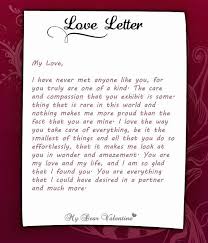 Love Letter
My Love,
I have never met anyone like you, for
you truly are one of a kind. The care
and compassion that you exhibit is some-
thing that is rare in this world and
nothing makes me more proud than the fact
that you are mine. I love the way you
take care of everything, be it the
smallest of things and all that you do so
effortlessly, that it makes me look at
you in wonder and amazement. You are
my love and my life, and I am so glad
that I found you. You are everything
that I could have desired in a partner
and much more.
My Dear Valentine